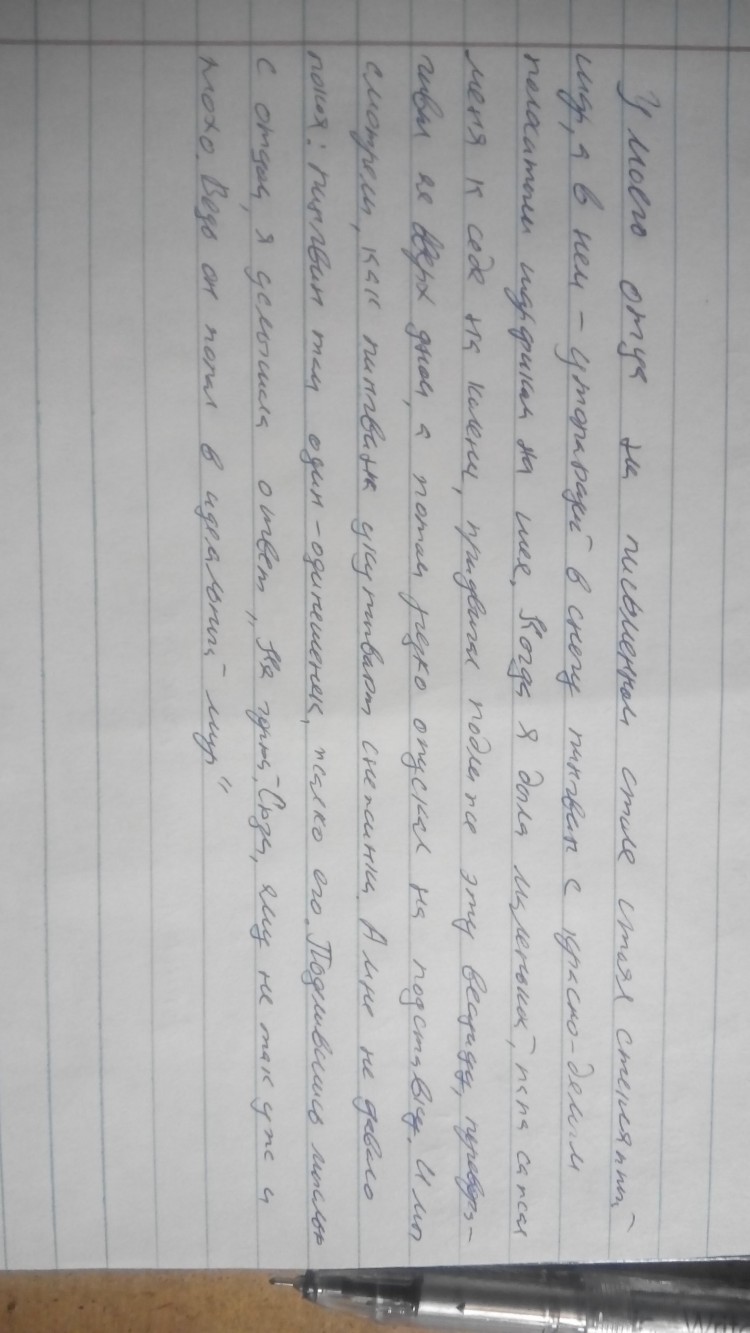 У моего отца на письменном столе стоял стеклянный
шар, а в нем – утопающий в снегу пингвин с красно-белым
полосатым шарфиком на шее. Когда я была маленькой, папа сажал
меня к себе на колени, придвигал поближе эту вещицу, перевора-
чивал ее вверх дном, а потом резко опускал на подставку. И мы
смотрели, как пингвина укутывают снежинки. А мне не давало
покоя: пингвин там один-одинешенек, жалко его. Поделившись мыслью
с отцом, я услышала ответ „Не думай, Сюзи, ему не так уж и
плохо. Ведь он попал в идеальный мир"